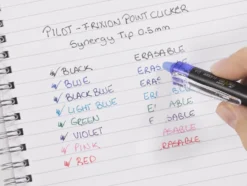 PILOT - FRIXION POINT CLICKER
Synergy Tip 0.5mm
✓ BLACK ERASABLE
✓ BLUE ERAS
✓ BLACK BLUE ERA
✓ LIGHT BLUE ER BLE
✓ GREEN E ABLE
✓ VIOLET E SABLE
✓ PINK ASABLE
✓ RED RASABLE